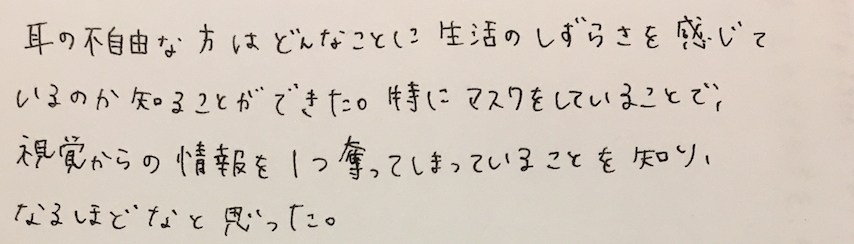 耳の不自由な方はどんなことに生活のしずらさを感じて
いるのか知ることができた。特にマスクをしていることで、
視覚からの情報を1つ奪ってしまっていることを知り、
なるほどなと思った。